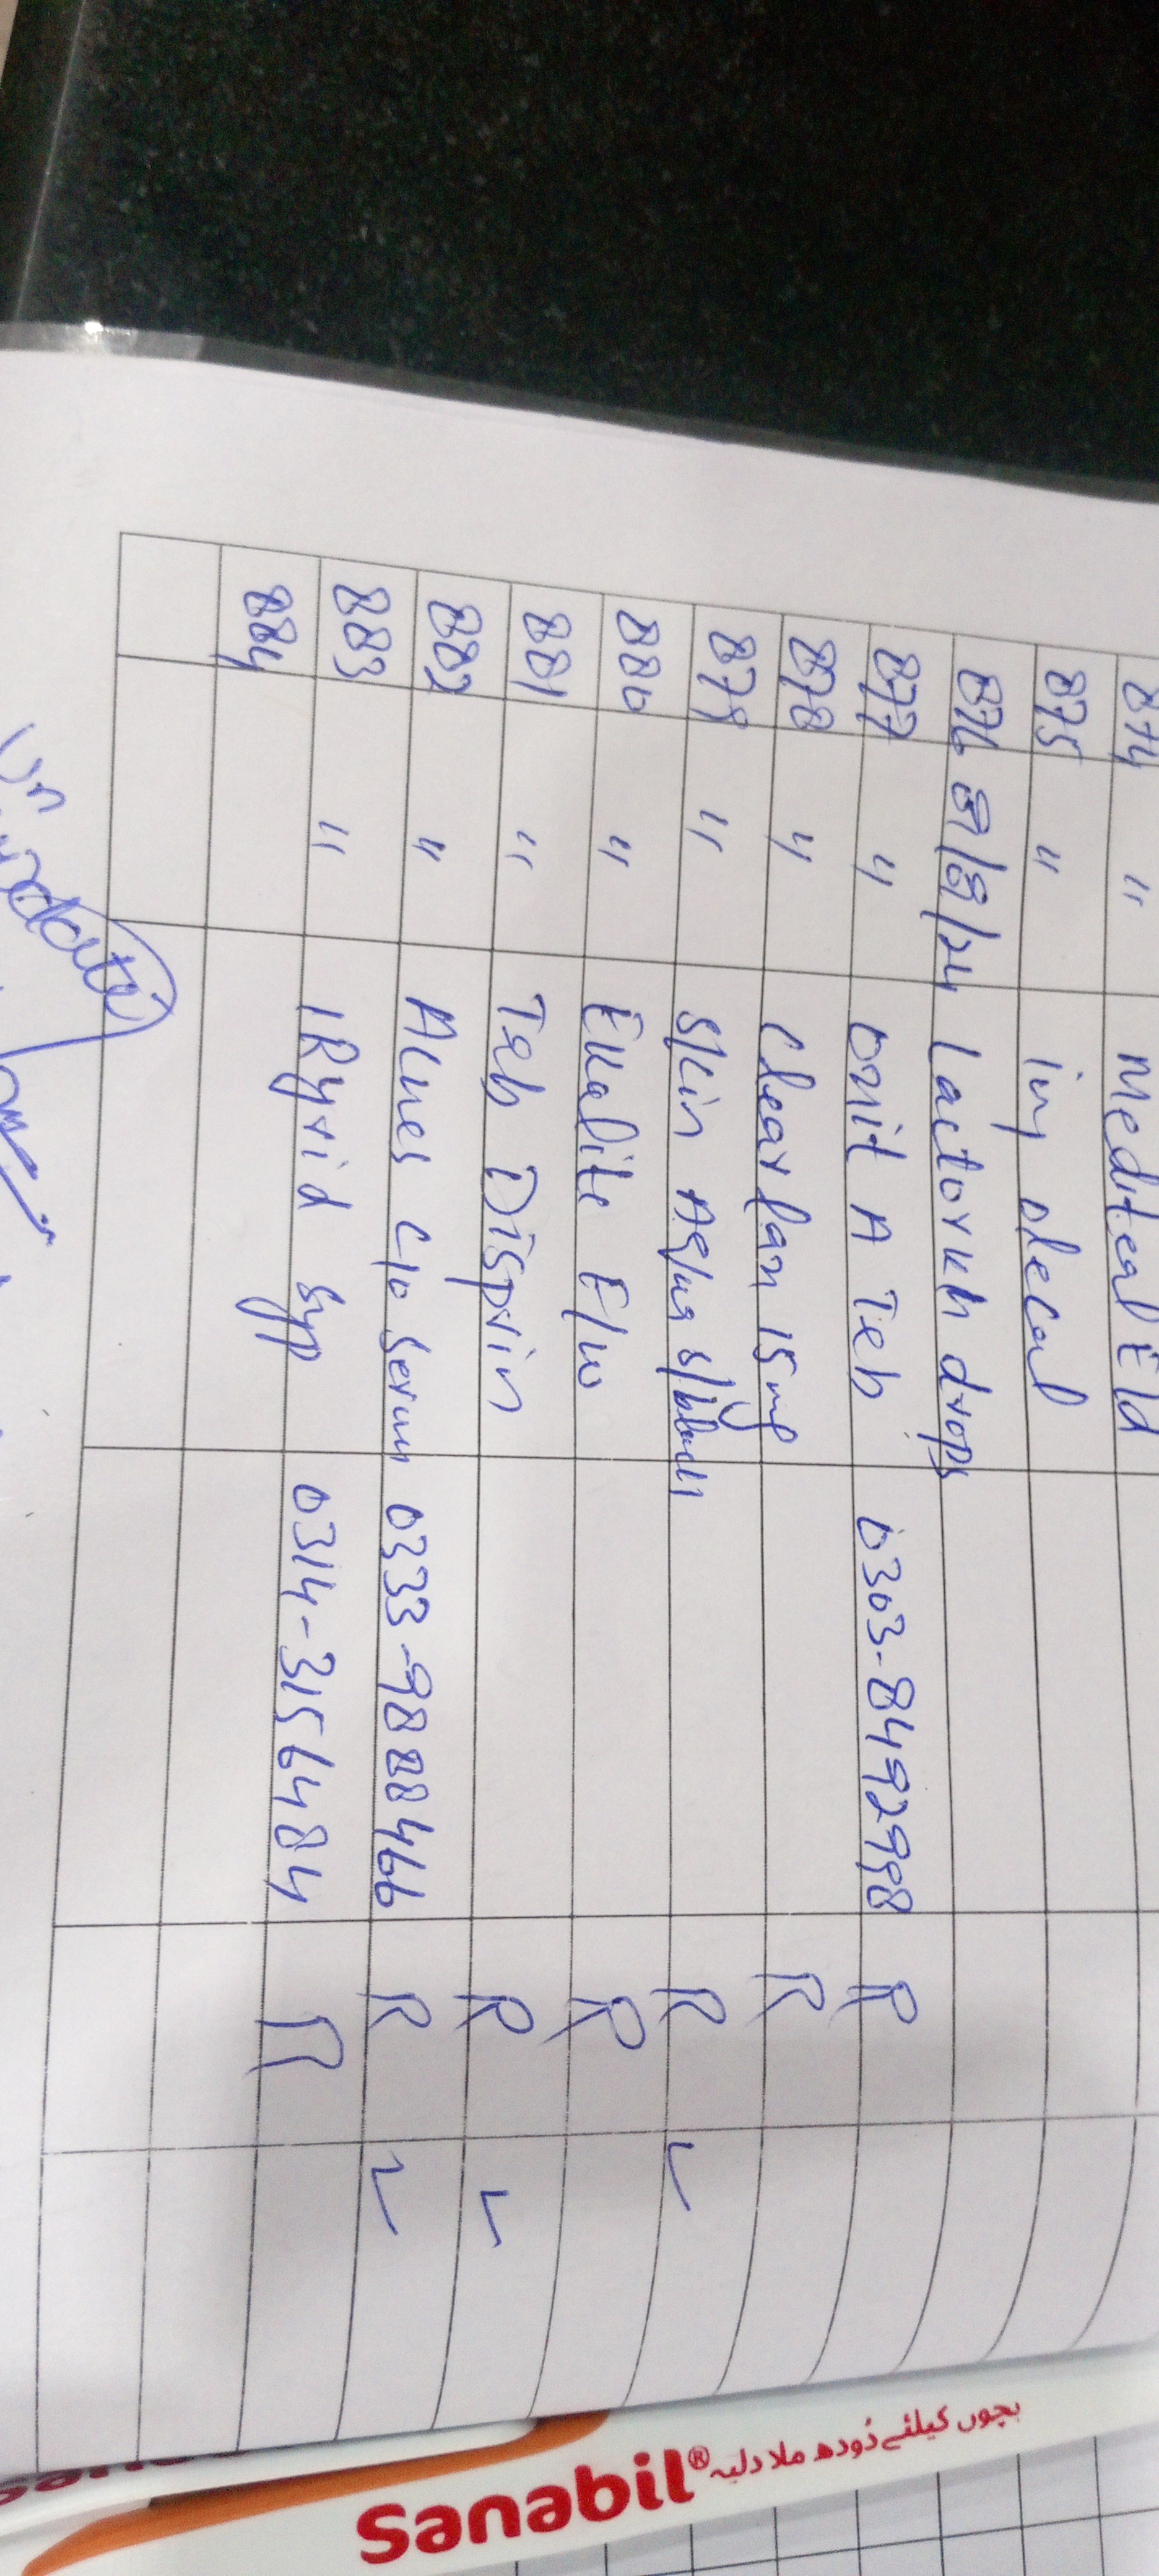 874 " Mediteal E/d
875 " inj olecal
876 8/8/24 Lactoruh drops
877 " onit A Teb 0303-8492998 R
878 " Clearfan 15mg R
879 " Skin Aqua s/block R ✓
880 " Eualite F/w R
881 " Teb Disprin R ✓
882 " Acnes c/o Serum 0333-9888466 R ✓
883 " IRyvid Syp 0314-3156484 R
884
Sanabil®
بچوں کیلئے دُودھ ملا دلیہ